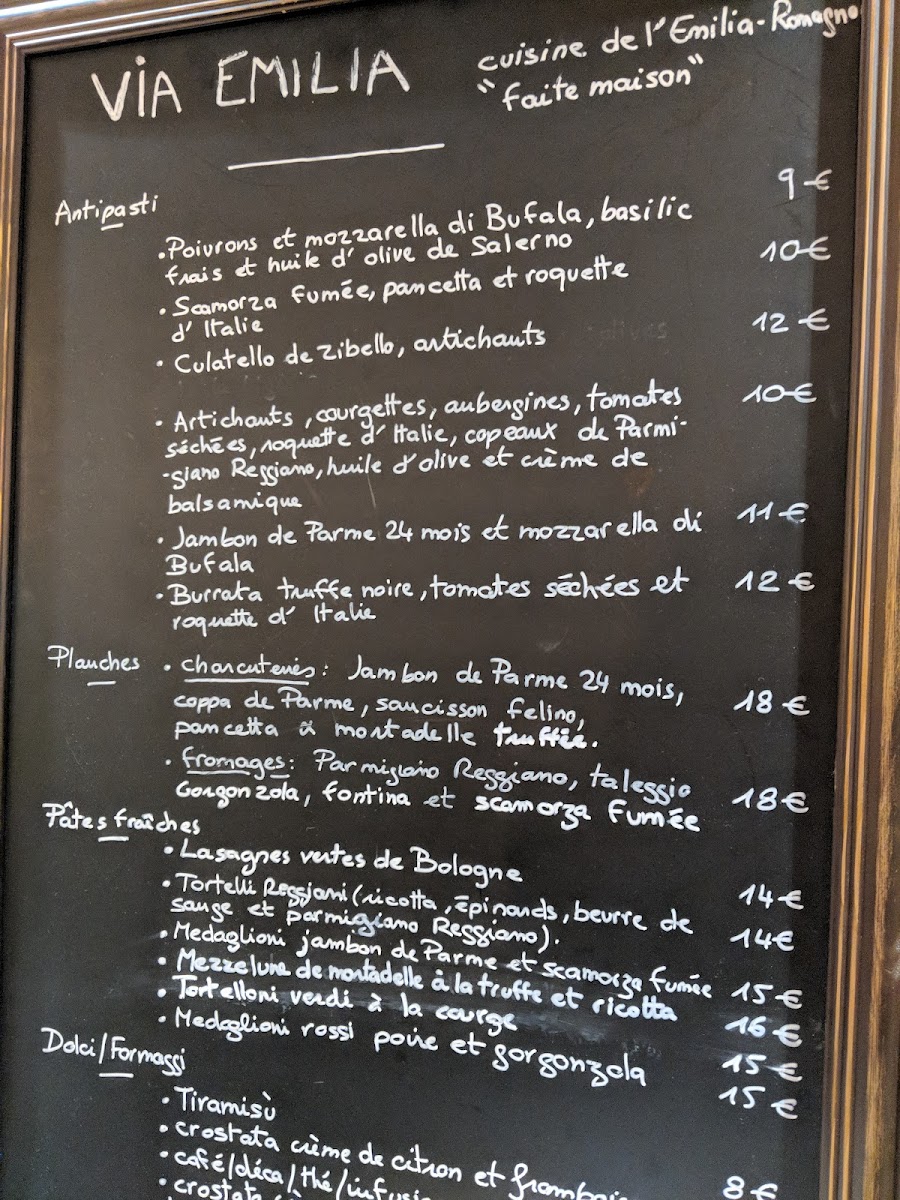 VIA EMILIA
cuisine de l'Emilia-Romagna
"faite maison"
Antipasti
9€
• Poivrons et mozzarella di Bufala, basilic
frais et huile d'olive de Salerno
10€
• Scamorza fumée, pancetta et roquette
d'Italie
12€
• Culatello de Zibello, artichauts
10€
• Artichauts, courgettes, aubergines, tomates
séchées, roquette d'Italie, copeaux de Parmi-
-giano Reggiano, huile d'olive et crème de
balsamique
• Jambon de Parme 24 mois et mozzarella di 11€
Bufala
• Burrata truffe noire, tomates séchées et 12€
roquette d'Italie
Planches • charcuteries: Jambon de Parme 24 mois,
coppa de Parme, saucisson felino, 18€
pancetta & mortadelle truffée.
• fromages: Parmigiano Reggiano, taleggio
Gorgonzola, fontina et scamorza fumée 18€
Pâtes fraîches
• Lasagnes vertes de Bologne 14€
• Tortelli Reggiani (ricotta, épinards, beurre de
sauge et parmigiano Reggiano). 14€
• Medaglioni jambon de Parme et scamorza fumée 15€
• Mezzelune de mortadelle à la truffe et ricotta 16€
• Tortelloni verdi à la courge 15€
• Medaglioni rossi poire et gorgonzola 15€
Dolci/Formaggi
• Tiramisù
• crostata crème de citron et 8€
• café/déca/thé/infusi
• crostata